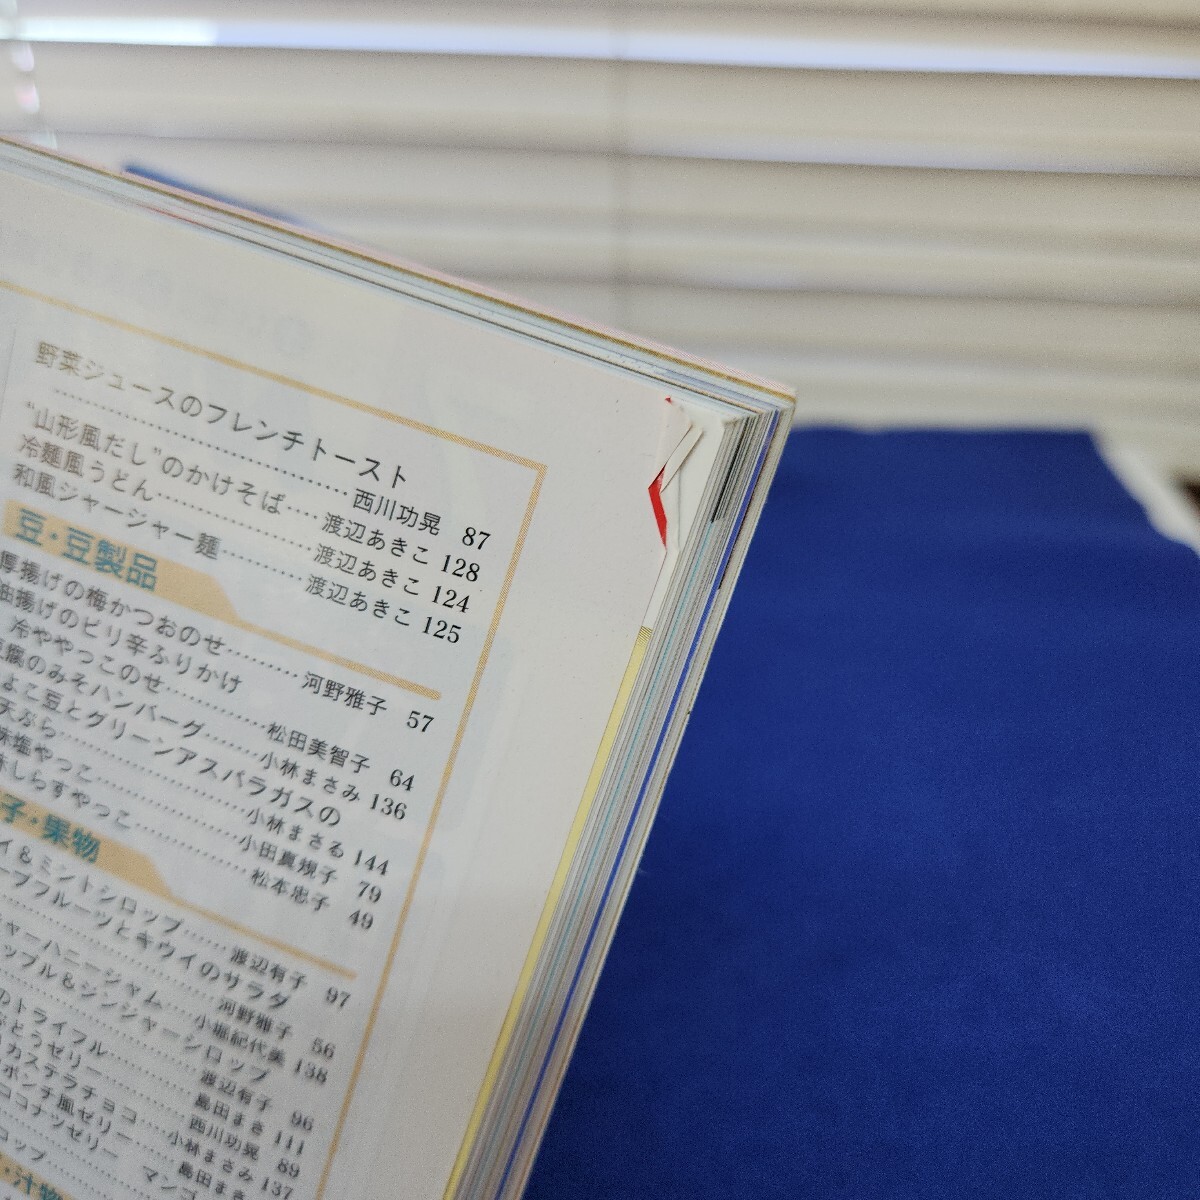 野菜ジュースのフレンチトースト
西川功晃 87
"山形風だし"のかけそば 渡辺あきこ 128
冷麺風うどん 渡辺あきこ 124
和風ジャージャー麺 渡辺あきこ 125
豆・豆製品
厚揚げの梅かつおのせ 河野雅子 57
油揚げのピリ辛ふりかけ
冷ややっこのせ 松田美智子 64
腐のみそハンバーグ 小林まさみ 136
よこ豆とグリーンアスパラガスの
天ぷら 小林まさる 144
塩やっこ 小田真規子 79
しらすやっこ 松本忠子 49
子・果物
イ&ミントシロップ 渡辺有子 97
ープフルーツとキウイのサラダ
河野雅子 56
ャーハニージャム 小堀紀代美 138
ップル&ジンジャーシロップ
渡辺有子 96
のトライフル 島田まき 111
ぶどうゼリー 西川功晃 89
カステラチョコ 小林まさみ 137
ポンチ風ゼリー 島田まき
ココナッツゼリー マンゴ
ロップ
・汁物